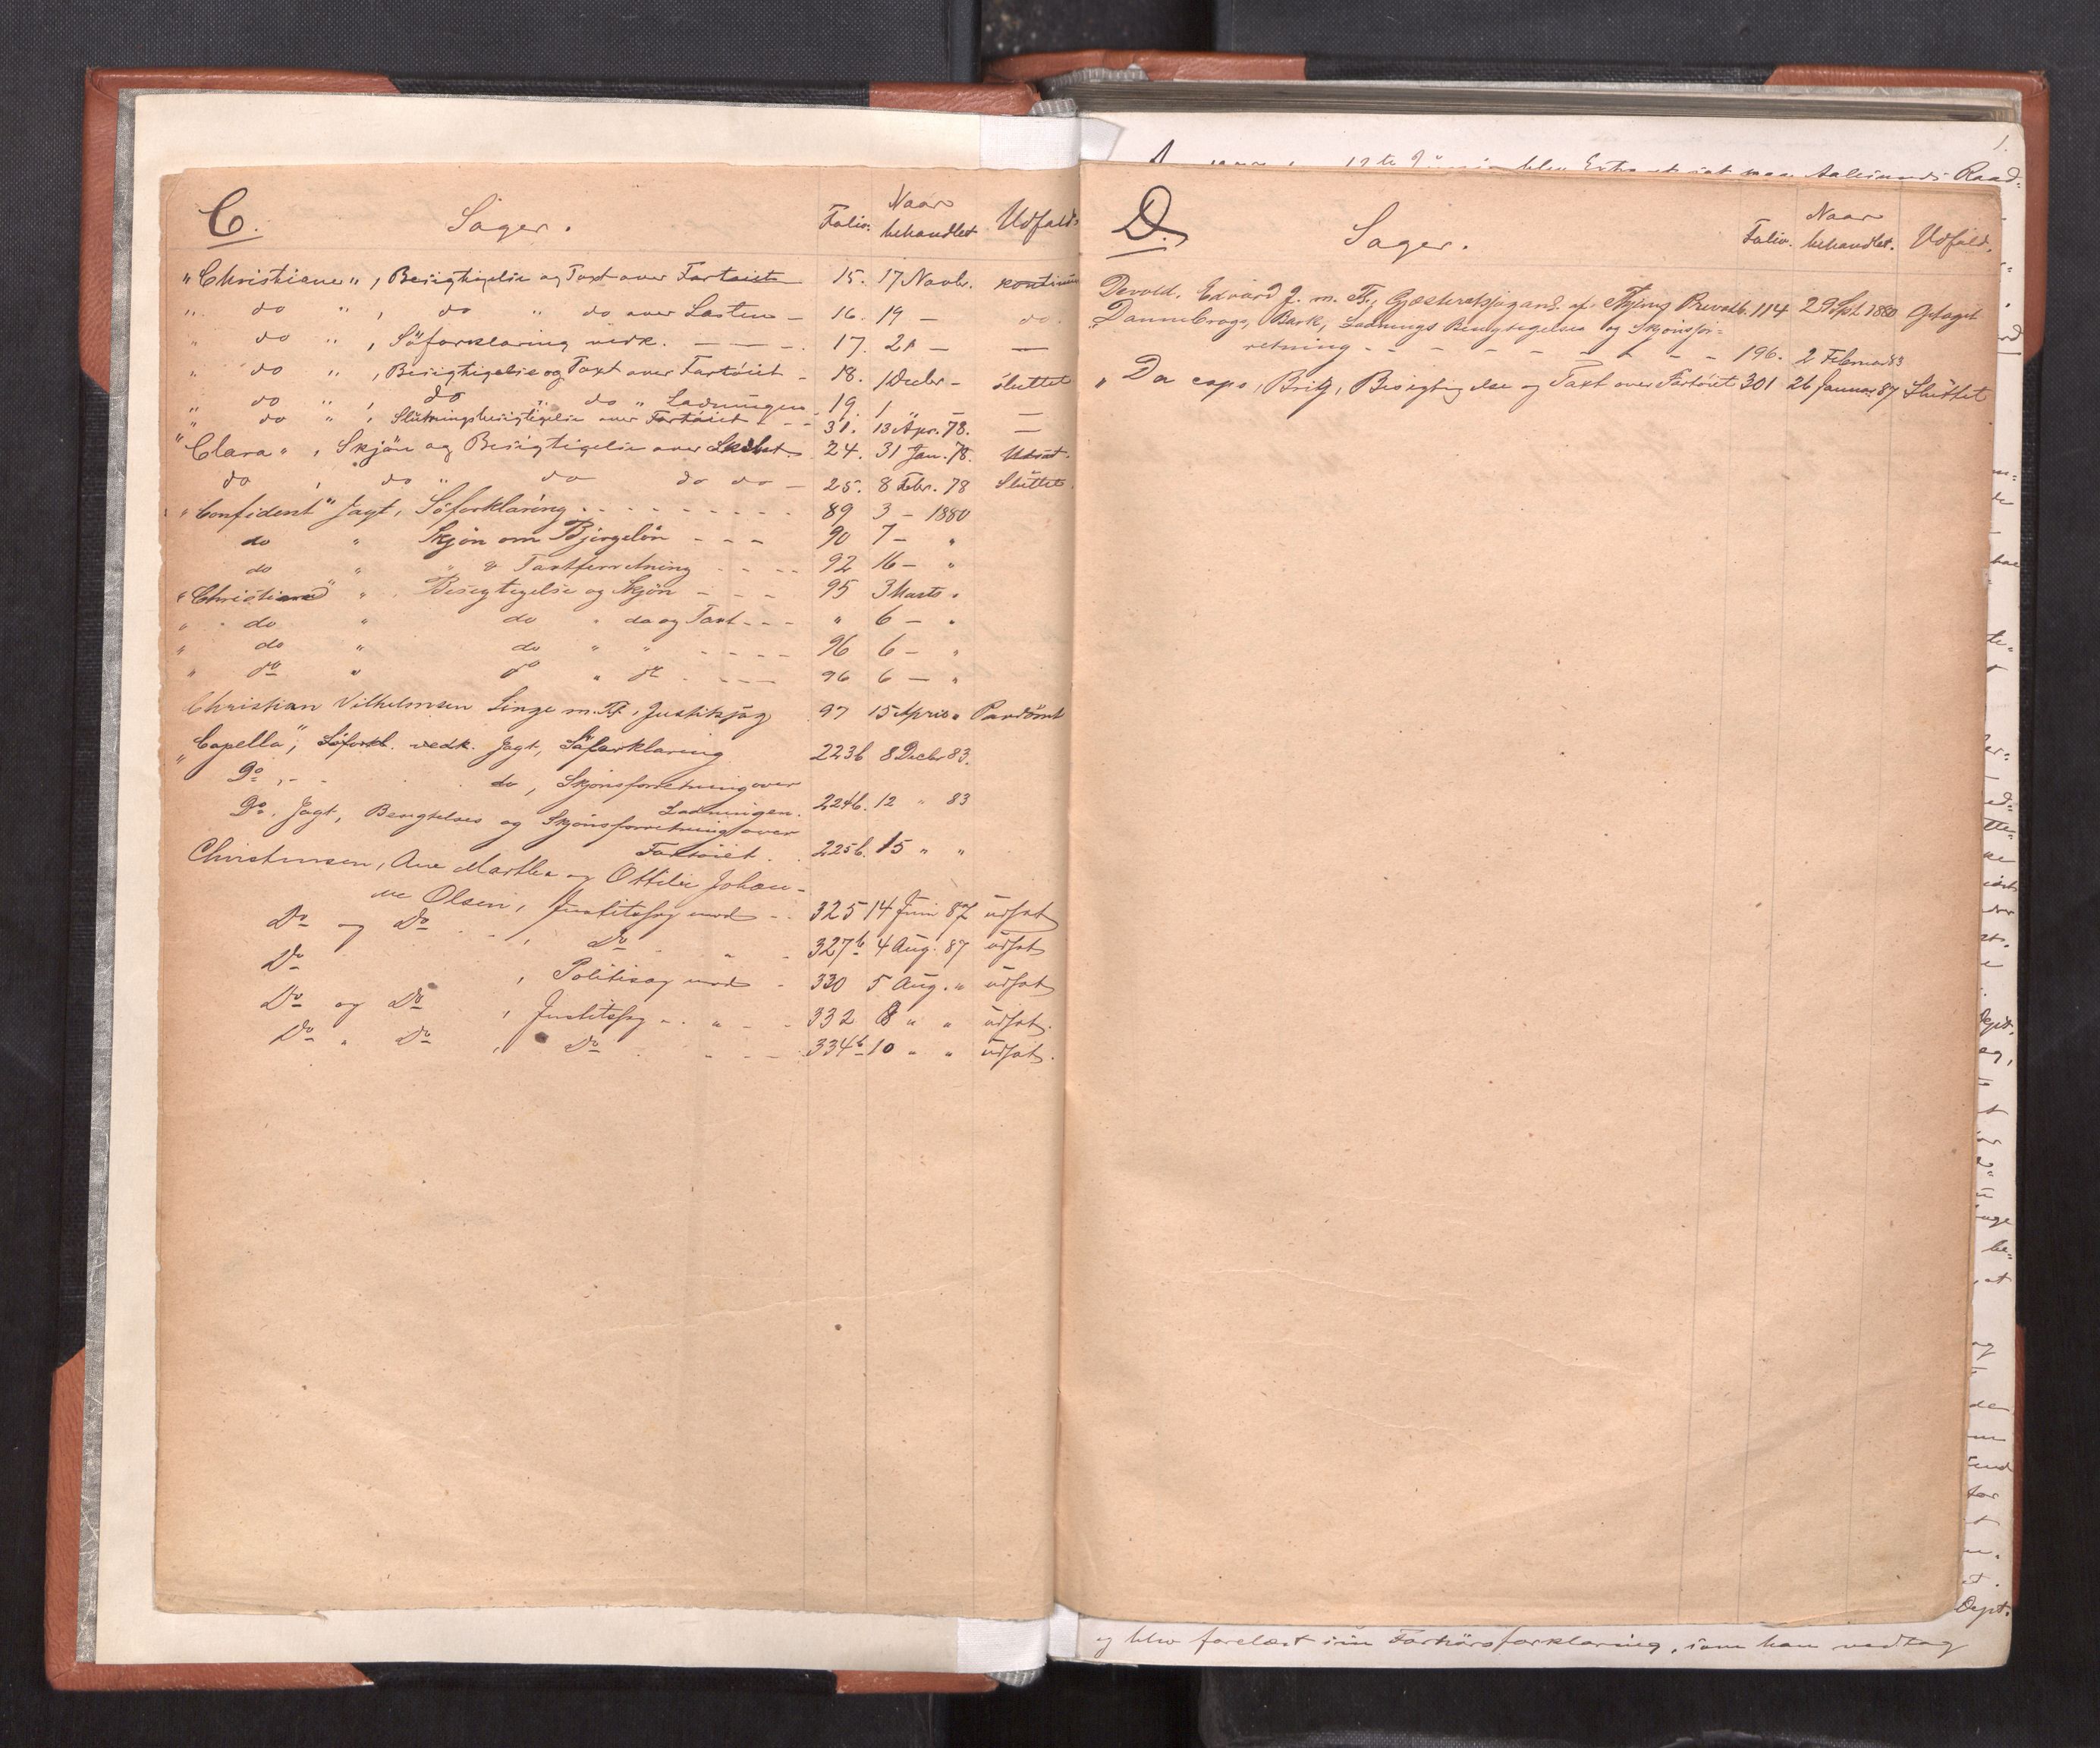 C. Sager. Folio. Naar behandlet Udfald:
"Christiane", Besigtigelse og Taxt over Fartøiet 15. 17 Novbr. kontinu
" do ", do " do over Lasten - 16. 19 - do.
" do ", Söforklaring vedk. - - - 17. 21 - —
" do ", Besigtigelse og Taxt over Fartöiet - 18. 1 Decbr - sluttet
" do ", do " do " Ladningen - 19. 1 " - —
" do ", Slutningsbesigtigelse over Fartöiet - - 31. 13 Apr. 78. —
"Clara", Skjön og Besigtigelse over Skibet. 24. 31 Jan. 78. Udsat.
do , do " do do do - 25. 8 Febr. 78 Sluttet.
"Confident" Jagt, Söforklaring - - - - - - - - - 89 3 - 1880
do " Skjön om Bjergelön - - - 90 7 - "
do " " & Taxtforretning - - - - 92 16 - "
"Christiane" ". Besigtigelse og Skjön - - - 95 3 Marts "
" do " do " do og Taxt - - - " 6 - "
" do " do " " - - - - 96 6 - "
" do " do " do - - - - 96 6 - "
Christian Vilhelmsen Linge m. Fl., Justitssag 97 15 April " Paadömt
"Capella", Söforkl. vedk. Jagt, Söforklaring 223b 8 Decbr 83.
" Do, - - do, Skjönsforretning over
Ladningen. 224b. 12 " 83
Do, Jagt, Besigtelses og Skjönsforretning over
Fartöiet. 225b. 15 " "
Christensen, Ane Marthe og Ottilie Johan-
ne Olsen, Justitssag mod - - 325 14 Juni 87 udsat
Do og Do , Do " - 327b 4 Aug. 87 udsat
Do , Politisag mod - 330 5 Aug. " udsat
Do og Do , Justitssag - . " - - 332 8 " " udsat.
Do " Do , Do - - - 334b 10 " " udsat.
1.
12te blev Extraret sat paa Aalesunds Raad-
D. Sager. Folio. Naar behandlet. Udfald.
Devold, Edvard J. m. Fl., Gjæsteretssag 114 29 Spt. 1880 Optaget
"Dannebrog", Bark, Ladnings Besigtigelses og Skjönsfor-
retning - - - - - - - - - 196. 2 Februar 83
"Da capo, Brig, Besigtigelse og Taxt over Fartöiet 301 26 Januar 87 Sluttet
Dept.
og blev forelæst sin Forhörsforklaring, som han vedtog